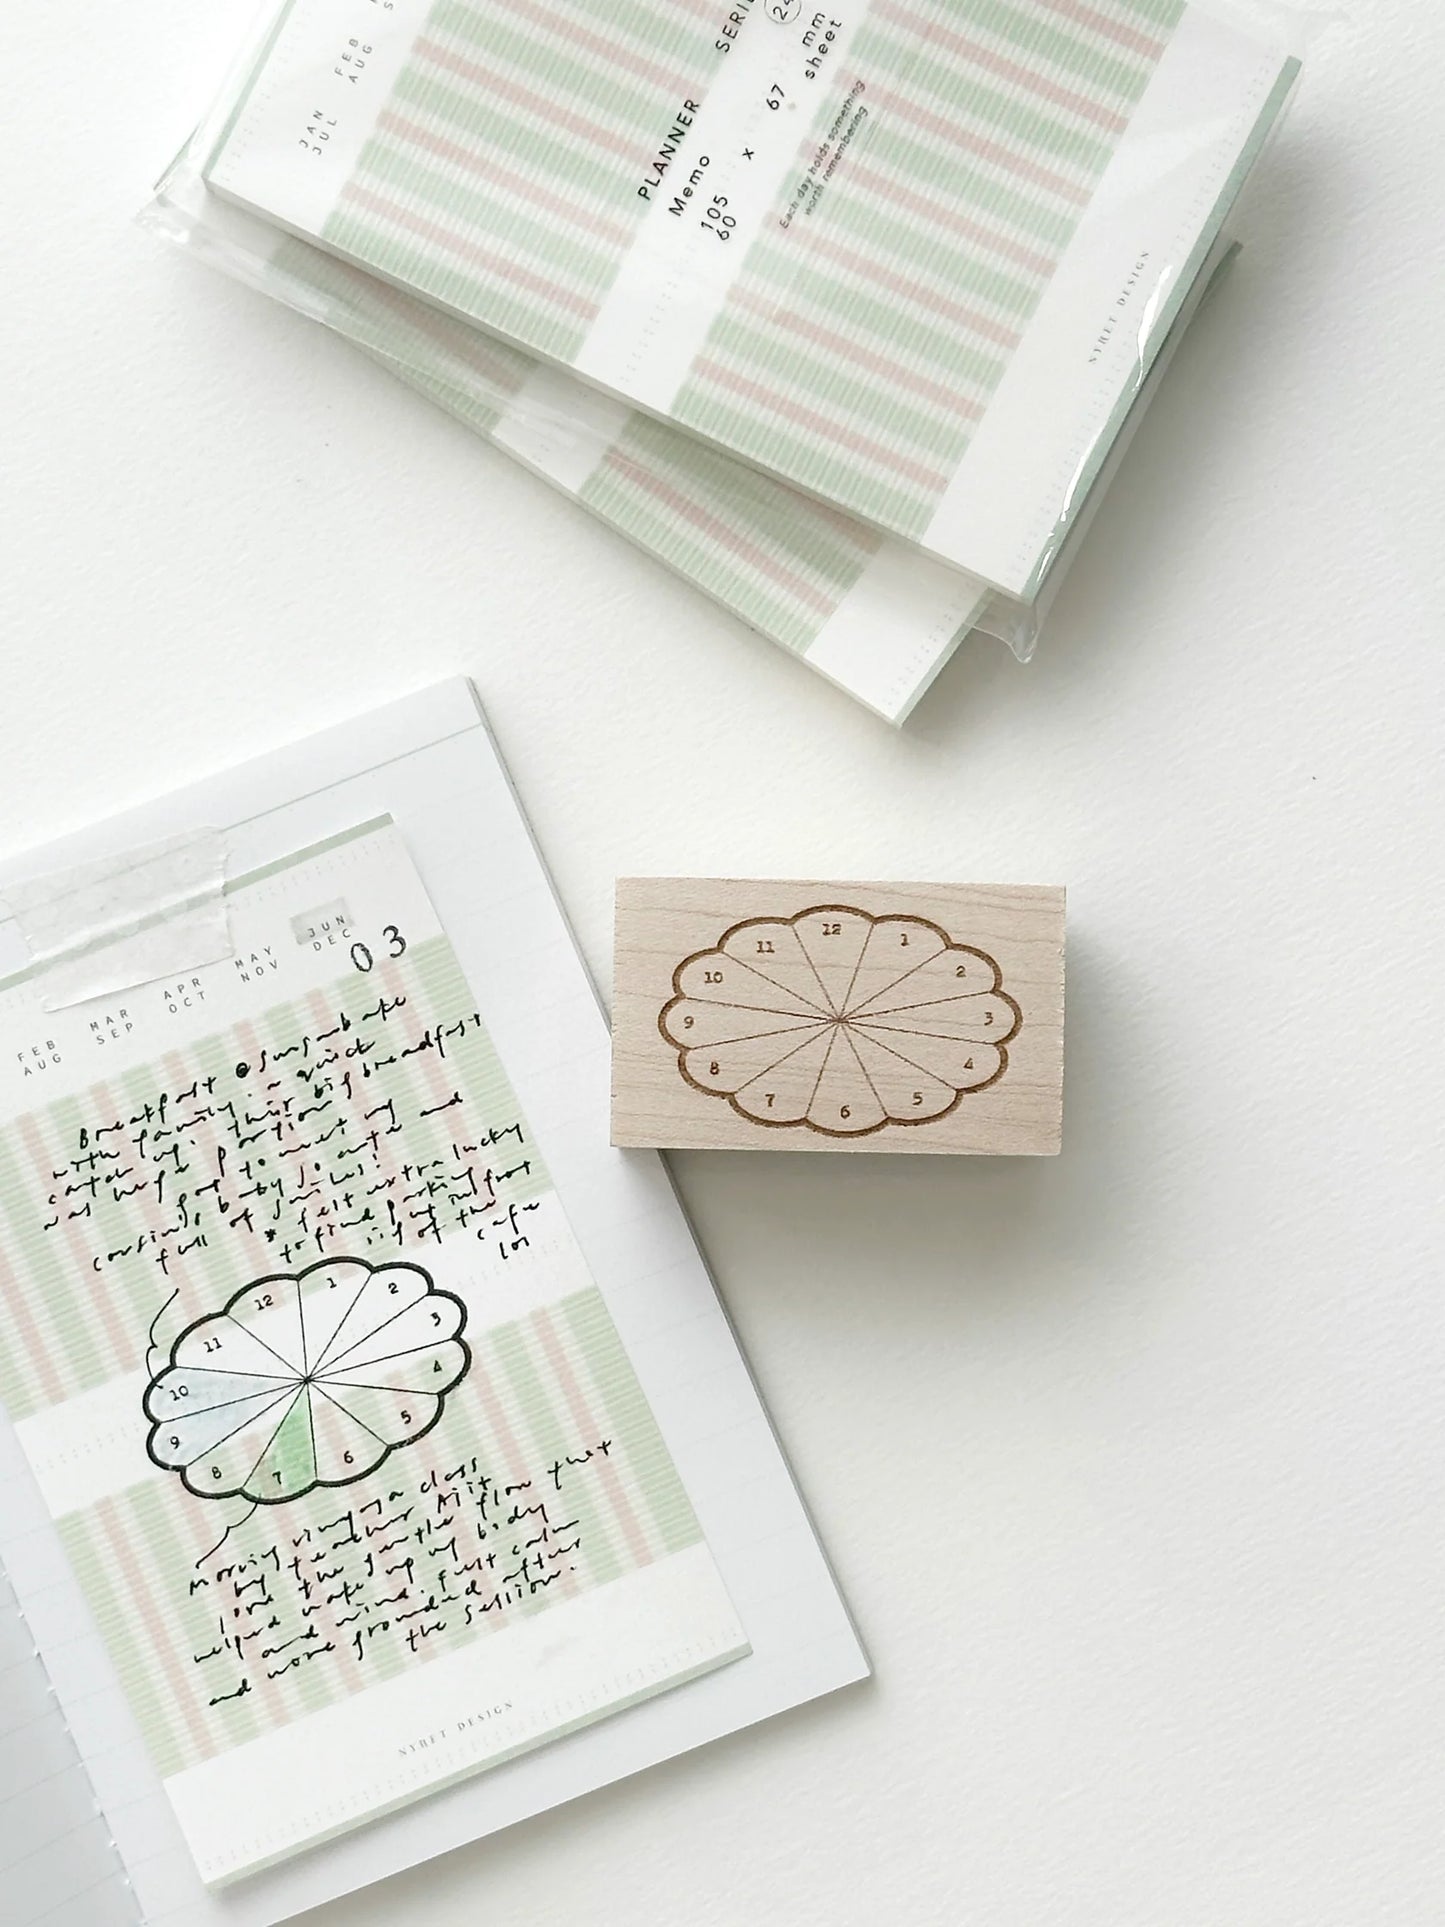 JAN FEB
JUL AUG
PLANNER
Memo
105 x 67 mm
60 sheet
Each day holds something
worth remembering
NYRET DESIGN
FEB MAR APR MAY JUN
AUG SEP OCT NOV DEC
03
Breakfast @
with family. a quick
catch up. their big breakfast
was huge portion!
got to meet my
cousin's baby and
full of smiles!
* felt extra lucky
to find parking
of the
cafe
lol
12 1 2 3 4 5 6 7 8 9 10 11
Morning yoga class
by teacher Ajit
love the gentle flow that
helped wake up my body
and mind. felt calm
and more grounded after
the session.
NYRET DESIGN
12 1 2 3 4 5 6 7 8 9 10 11